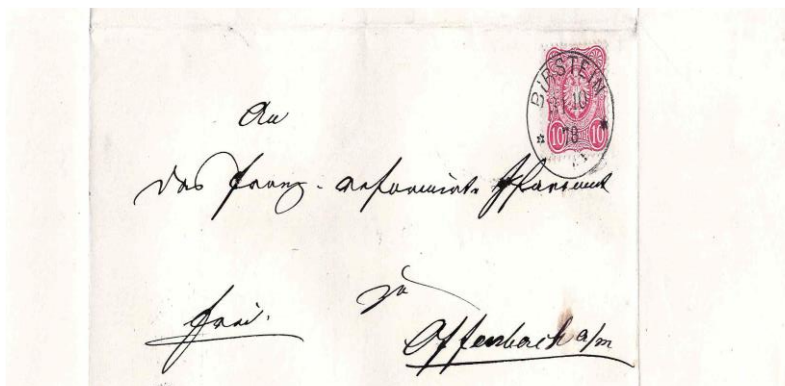 BIRSTEIN
10
78
10 10
An
das franz. reformirte Pfarramt
frei.
zu
Offenbach a/m